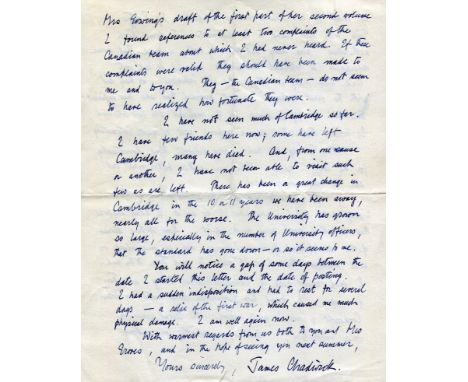 Mrs Gowing's draft of the first part of her second volume
I found references to at least two complaints of the
Canadian team about which I had never heard. If these
complaints were valid they should have been made to
me and to you. They — the Canadian team — do not seem
to have realized how fortunate they were.
I have not seen much of Cambridge so far.
I have few friends here now; some have left
Cambridge, many have died. And, from one cause
or another, I have not been able to visit such
few as are left. There has been a great change in
Cambridge in the 10 or 11 years we have been away,
nearly all for the worse. The University has grown
so large, especially in the number of University officers,
that the standard has gone down — or so it seems to me.
You will notice a gap of some days between the
date I started this letter and the date of posting.
I had a sudden indisposition and had to rest for several
days — a relic of the first war, which caused me much
physical damage. I am well again now.
With warmest regards from us both to you and Mrs
Groves, and in the hope of seeing you next summer,
Yours sincerely, James Chadwick.